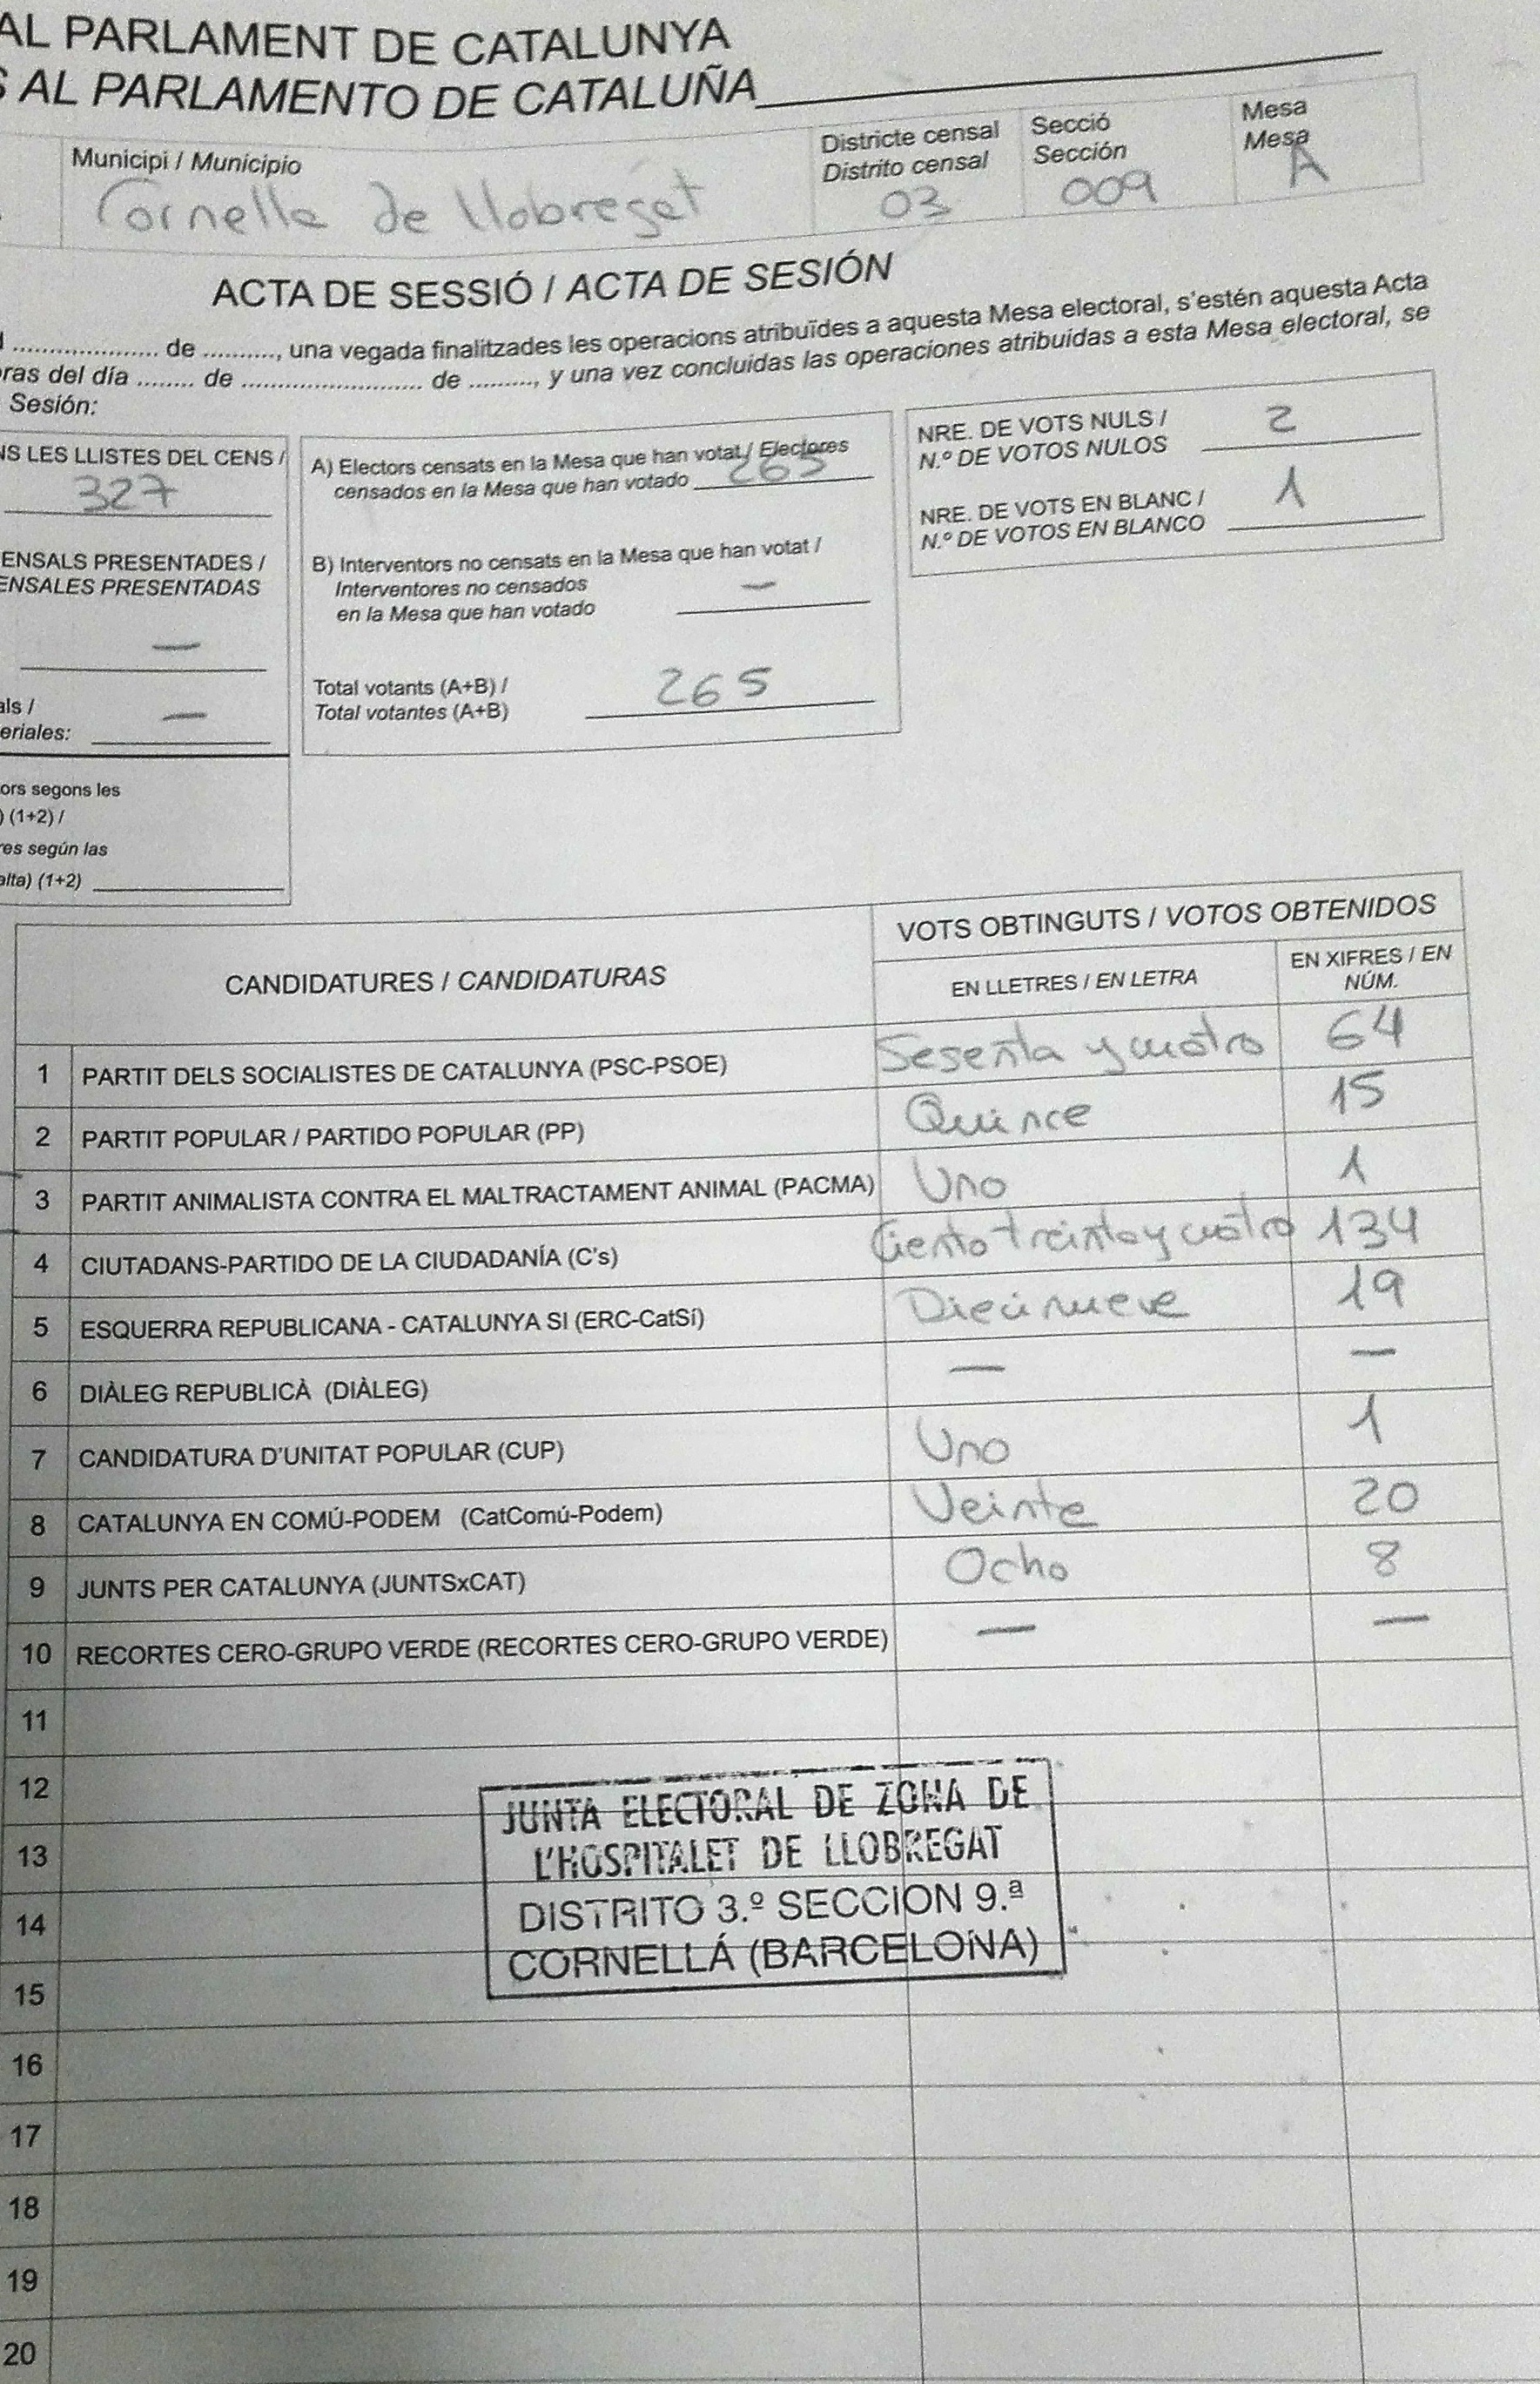 AL PARLAMENT DE CATALUNYA
AL PARLAMENTO DE CATALUÑA
Municipi / Municipio
Cornella de Llobregat
Districte censal
Distrito censal
03
Secció
Sección
009
Mesa
Mesa
A
ACTA DE SESSIÓ / ACTA DE SESIÓN
.................... de .........., una vegada finalitzades les operacions atribuïdes a aquesta Mesa electoral, s'estén aquesta Acta
ras del día ........ de ......................... de ........., y una vez concluidas las operaciones atribuidas a esta Mesa electoral, se
Sesión:
NS LES LLISTES DEL CENS /
327
ENSALS PRESENTADES /
ENSALES PRESENTADAS
—
als /
eriales: —
ors segons les
) (1+2) /
res según las
alta) (1+2)
A) Electors censats en la Mesa que han votat / Electores
censados en la Mesa que han votado 265
B) Interventors no censats en la Mesa que han votat /
Interventores no censados
en la Mesa que han votado —
Total votants (A+B) /
Total votantes (A+B) 265
NRE. DE VOTS NULS /
N.º DE VOTOS NULOS 2
NRE. DE VOTS EN BLANC /
N.º DE VOTOS EN BLANCO 1
CANDIDATURES / CANDIDATURAS
VOTS OBTINGUTS / VOTOS OBTENIDOS
EN LLETRES / EN LETRA
EN XIFRES / EN
NÚM.
1 PARTIT DELS SOCIALISTES DE CATALUNYA (PSC-PSOE) Sesenta y cuatro 64
2 PARTIT POPULAR / PARTIDO POPULAR (PP) Quince 15
3 PARTIT ANIMALISTA CONTRA EL MALTRACTAMENT ANIMAL (PACMA) Uno 1
4 CIUTADANS-PARTIDO DE LA CIUDADANÍA (C's) Ciento treinta y cuatro 134
5 ESQUERRA REPUBLICANA - CATALUNYA SI (ERC-CatSí) Diecinueve 19
6 DIÀLEG REPUBLICÀ (DIÀLEG) — —
7 CANDIDATURA D'UNITAT POPULAR (CUP) Uno 1
8 CATALUNYA EN COMÚ-PODEM (CatComú-Podem) Veinte 20
9 JUNTS PER CATALUNYA (JUNTSxCAT) Ocho 8
10 RECORTES CERO-GRUPO VERDE (RECORTES CERO-GRUPO VERDE) — —
11
12
JUNTA ELECTORAL DE ZONA DE
13
L'HOSPITALET DE LLOBREGAT
14
DISTRITO 3.º SECCION 9.ª
CORNELLÁ (BARCELONA)
15
16
17
18
19
20